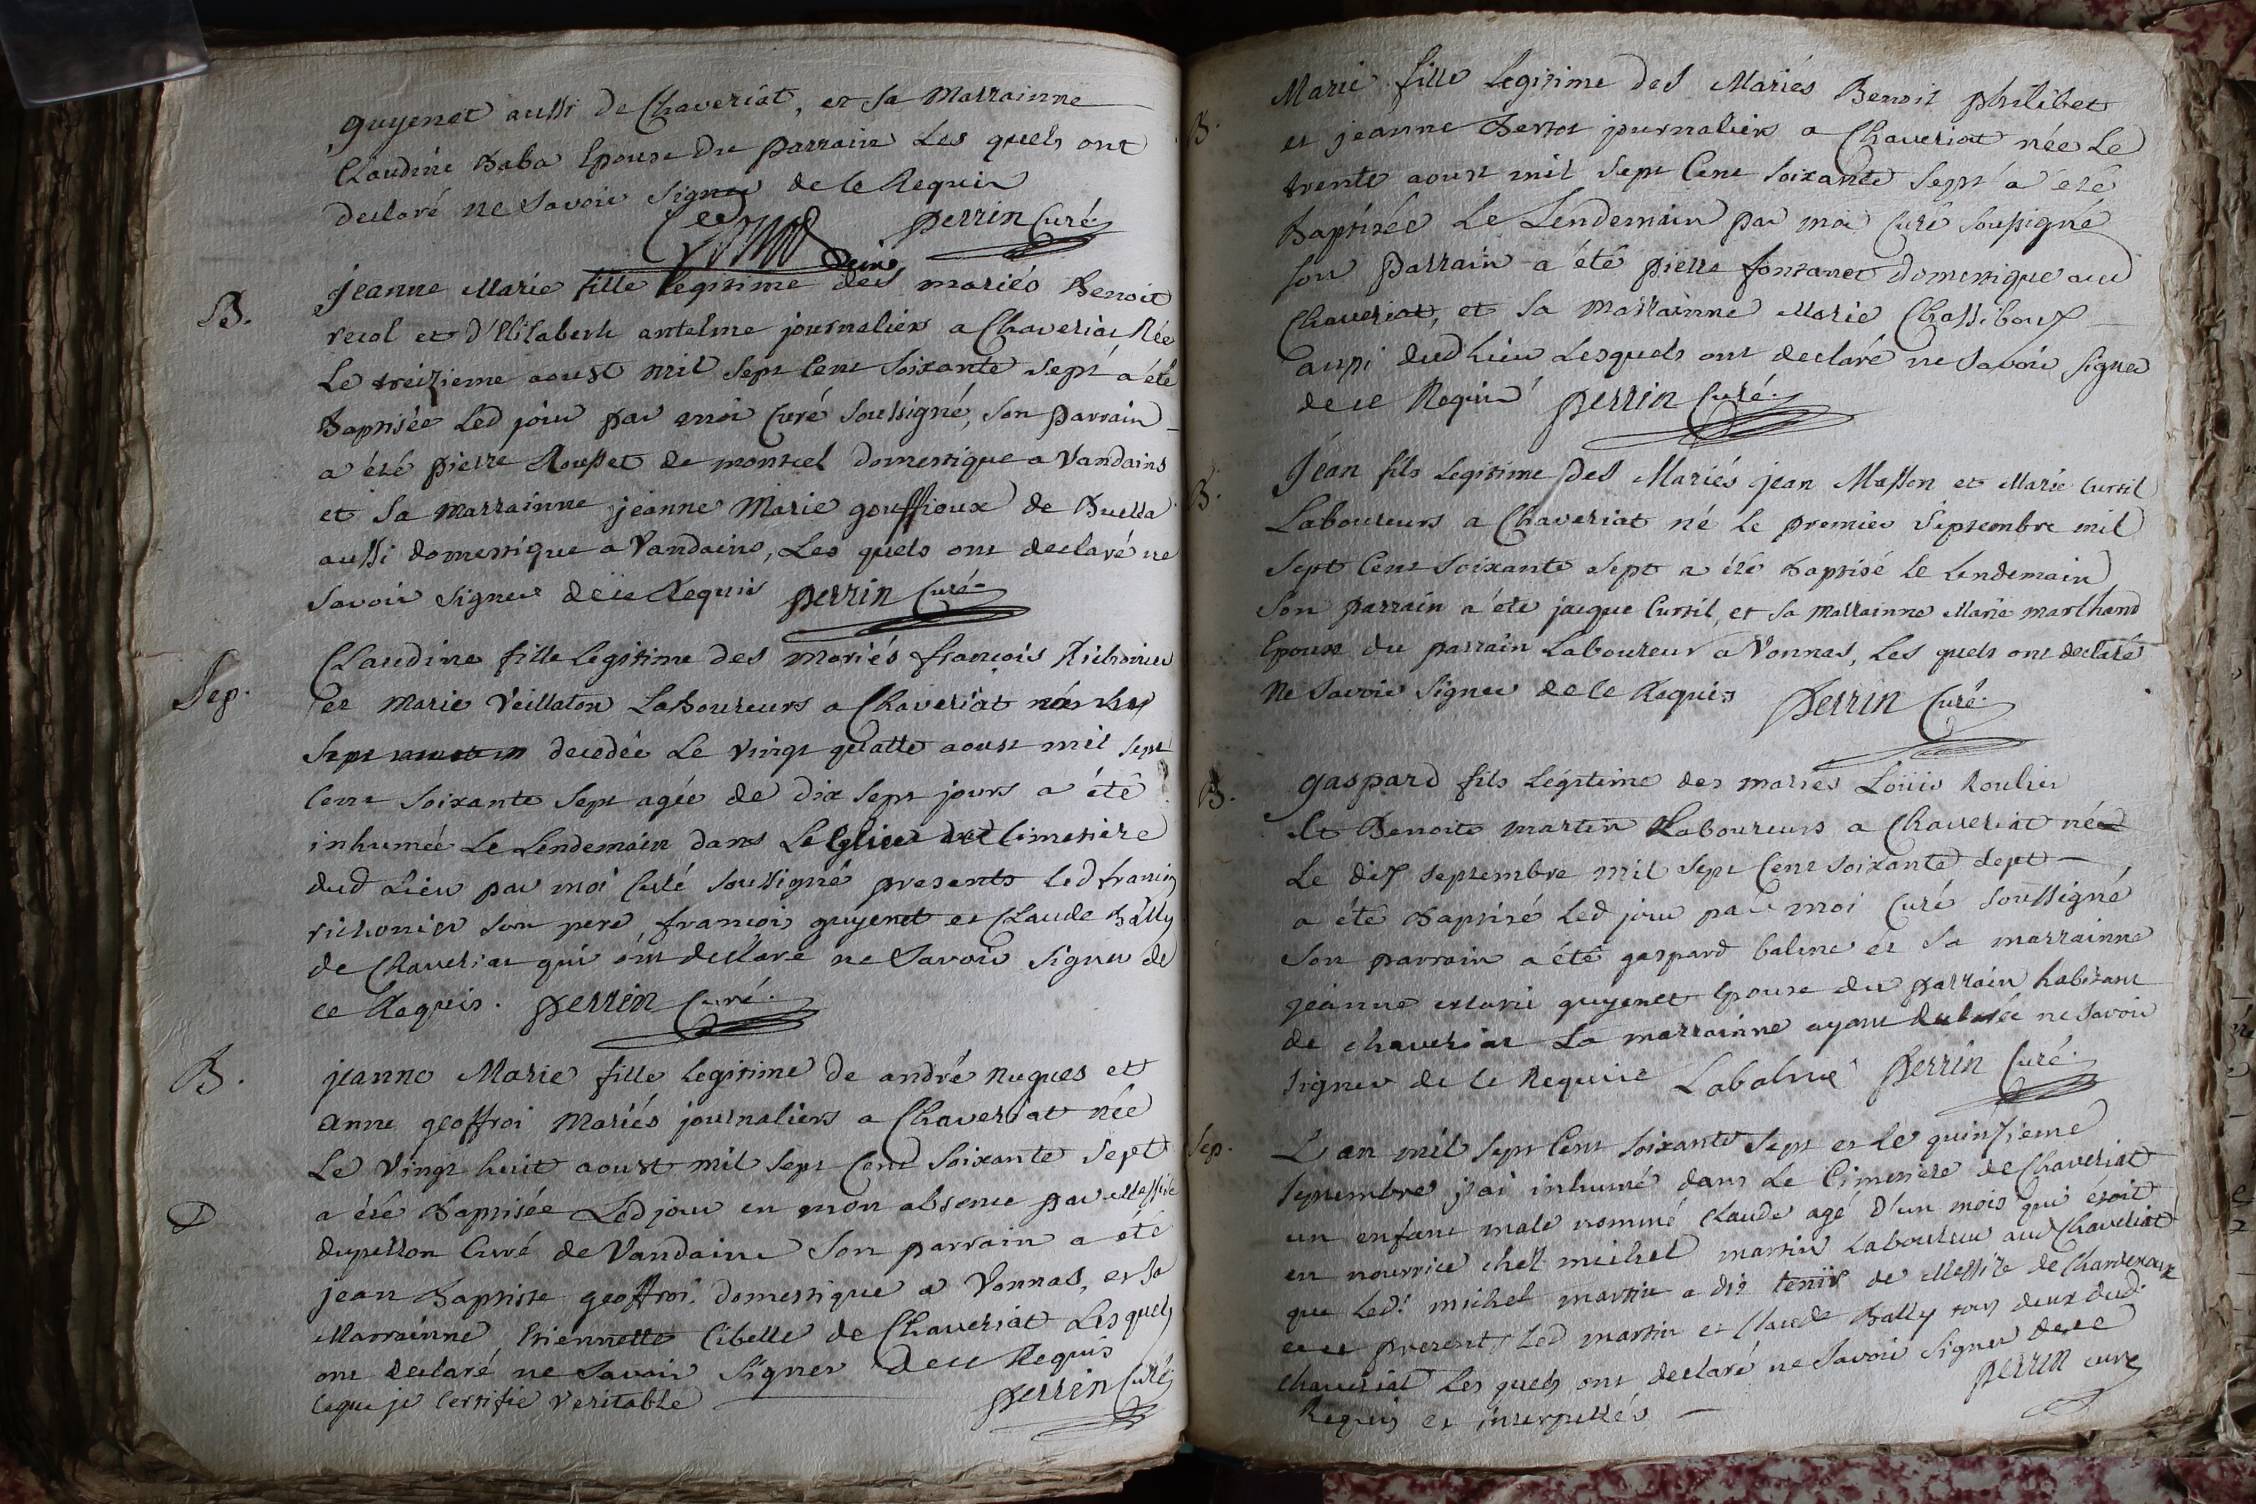 guyenet aussi de Chaveriat, et sa Marrainne
Claudine Baba Epouse du parrain Les quels ont
declaré ne savoir signer de ce Requis
perrin Curé
B.
Jeanne Marie fille legitime des mariés Benoit
recol et d'Elisabeth antelme journaliers a Chaveriat Née
Le treizieme aoust mil sept Cent soixante sept a été
Baptisée Led jour par moi Curé soussigné, son parrain
a été pierre Rousset de montcel domestique a Vandains
et sa marrainne jeanne Marie gouffioux de Buella
aussi domestique a Vandains, Les quels ont declaré ne
savoir signer de ce Requis perrin Curé
Sep.
Claudine fille Legitime des mariés françois Richonier
et Marie Veillaton Laboureurs a Chaveriat
decedée Le vingt quatre aoust mil sept
Cent soixante sept agée de dix sept jours a été
inhumée Le Lendemain dans Cimetière
dud Lieu par moi Curé soussigné presents led francois
richonier son pere, francois guyenet et Claude Bally
de Chaveriat qui ont declaré ne savoir signer de
ce Requis. perrin Curé.
B.
jeanne Marie fille legitime de andré nugues et
anne geoffroi Mariés journaliers a Chaveriat née
Le vingt huit aoust mil sept Cent soixante sept
a été Baptisée Led jour en mon absence par Messire
dupellon Curé de Vandains son parrain a été
jean Baptiste geoffroi, domestique a Vonnas, et sa
Marrainne Etiennette Cibelle de Chaveriat Les quels
ont declaré ne savoir signer de ce Requis
ceque je Certifie veritable perrin Curé
B.
Marie fille legitime des Mariés Benoit philibet
et jeanne Bertot journaliers a Chaveriat née Le
trente aoust mil sept Cent soixante sept a été
Baptisée Le Lendemain par moi Curé soussigné
son parrain a été pierre fontanet domestique aud
Chaveriat, et sa marrainne Marie Chassiboux
aussi dud Lieu Lesquels ont declaré ne savoir signer
de ce Requis perrin Curé.
B.
Jean fils legitime des Mariés jean Masson et Marie Curtil
Laboureurs a Chaveriat né le premier septembre mil
sept Cent soixante sept a été Baptisé le Lendemain
son parrain a été jacque Curtil, et sa marrainne Marie marchand
Epouse du parrain Laboureur a Vonnas, Les quels ont declarés
Ne savoir signer de ce Requis perrin Curé
B.
gaspard fils legitime des mariés Loüis Roulier
Et Benoite martin Laboureurs a Chaveriat né
Le dix septembre mil sept Cent soixante sept
a été Baptisé led jour par moi Curé soussigné
son parrain a été gaspard balme et sa marrainne
jeanne marie guyenet Epouse du parrain habitant
de chaveriat La marrainne ayant declarée ne savoir
signer de ce Requise Labalme perrin Curé
Sep.
L'an mil sept Cent soixante sept et le quinzieme
septembre j'ai inhumé dans Le Cimetière de Chaveriat
un enfant male nommé Claude agé d'un mois qui étoit
en nourrice chez michel martin Laboureur aud Chaveriat
que Led. michel martin a dit tenir de Messire de
present Led martin et Claude Bally tous deux dud
chaveriat Les quels ont declaré ne savoir signer de ce
Requis et interpellés perrin curé